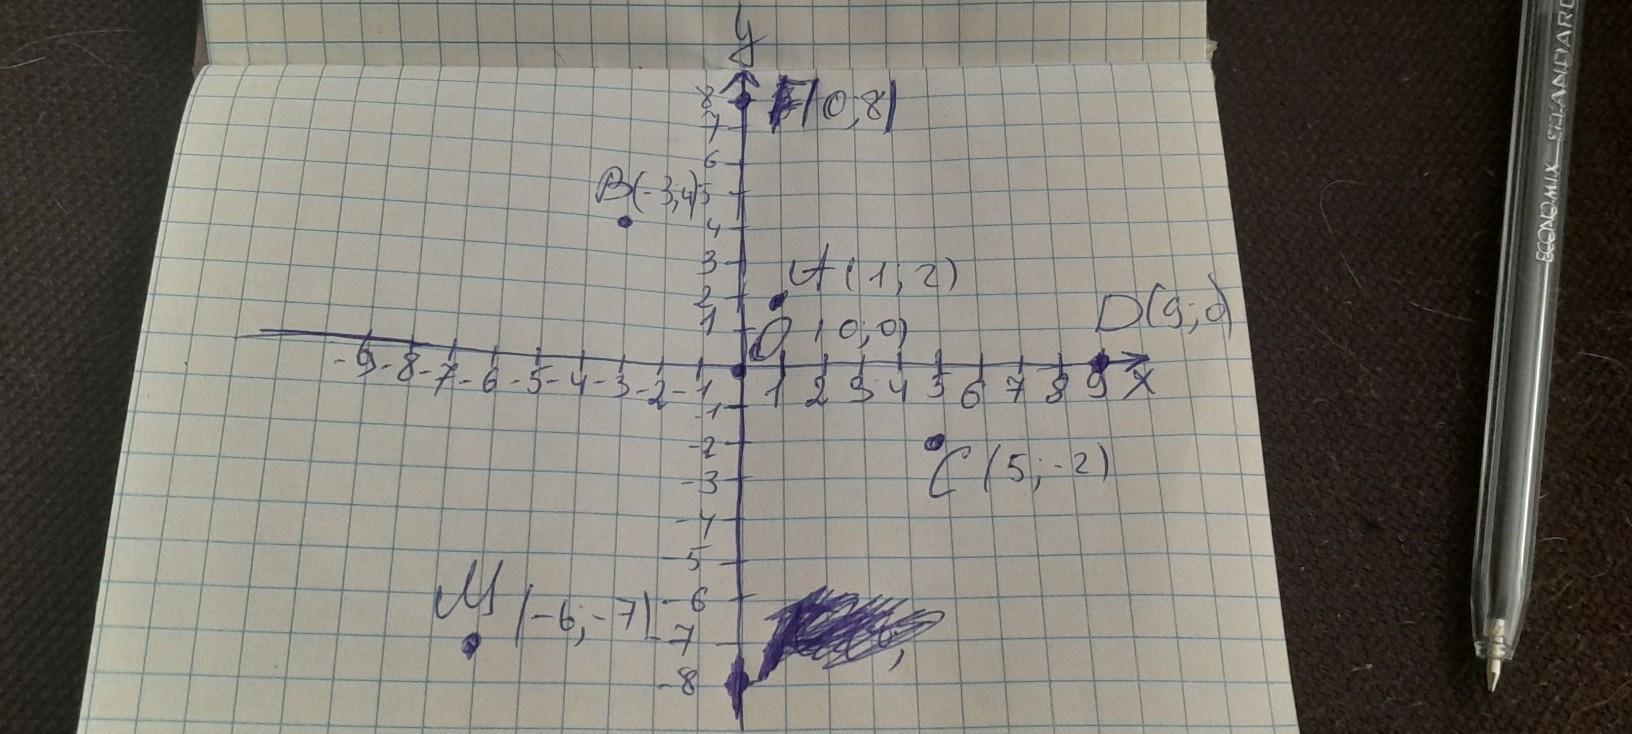 y
8 F(0;8)
7
6
B(-3;4) 5
4
3 A(1;2)
2
1 O(0;0) D(9;0)
-9 -8 -7 -6 -5 -4 -3 -2 -1 1 2 3 4 5 6 7 8 9 x
-1
-2
C(5;-2)
-3
-4
-5
M(-6;-7) -6
-7
-8
ECONOMIX STANDARD